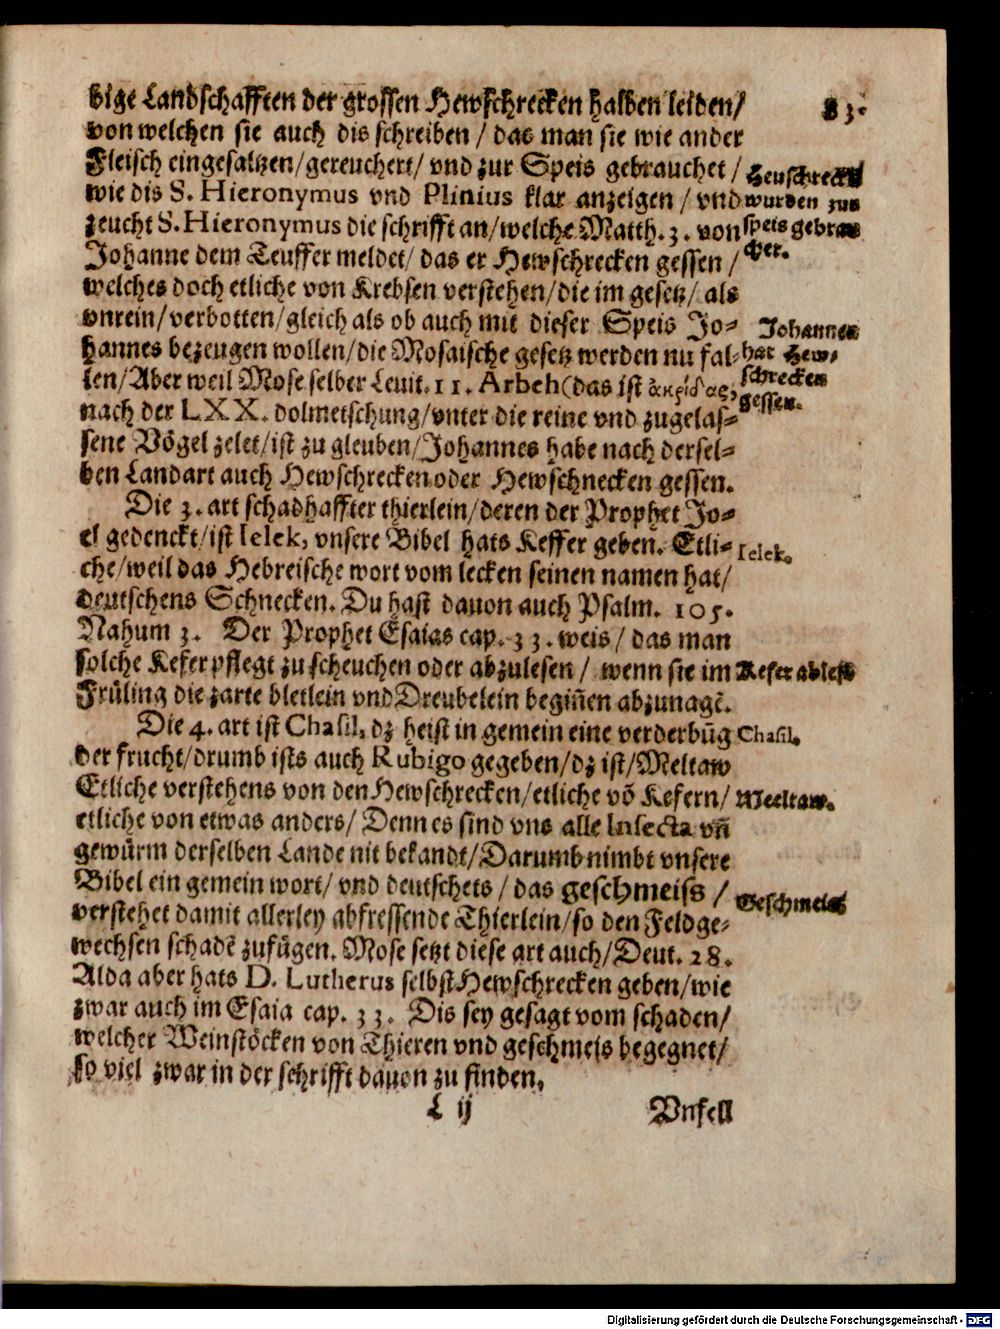 bige Landschafften der grossen Hewschrecken halben leiden/
83.
von welchen sie auch dis schreiben / das man sie wie ander
Fleisch eingesaltzen/gereuchert/ vnd zur Speis gebrauchet /
wie dis S. Hieronymus vnd Plinius klar anzeigen / vnd
zeucht S. Hieronymus die schrifft an/welche Matth. 3. von
Johanne dem Teuffer meldet/ das er Hewschrecken gessen /
Heuschreck
wurden zur
speis gebrau
chet.
welches doch etliche von Krebsen verstehen/die im gesetz/ als
vnrein/verbotten/gleich als ob auch mit dieser Speis Jo-
hannes bezeugen wollen/die Mosaische gesetz werden nu fal-
len/Aber weil Mose selber Leuit. 11. Arbeh (das ist ἀκρίδας,
nach der LXX. dolmetschung/vnter die reine vnd zugelas-
Johannes
hat Hew-
schrecken
gessen.
sene Vögel zelet/ist zu gleuben/Johannes habe nach dersel-
ben Landart auch Hewschrecken oder Hewschnecken gessen.
Die 3. art schadhaffter thierlein/deren der Prophet Jo-
el gedenckt/ist Ielek, vnsere Bibel hats Keffer geben. Etli-
Ielek.
che/weil das Hebreische wort vom lecken seinen namen hat/
deutschens Schnecken. Du hast dauon auch Psalm. 105.
Nahum 3. Der Prophet Esaias cap. 33. weis / das man
solche Kefer pflegt zu scheuchen oder abzulesen / wenn sie im
Kefer ablesē
Früling die zarte bletlein vnd Dreubelein begiñen abzunagē.
Die 4. art ist Chasil, dz heist in gemein eine verderbũg
Chasil.
der frucht/drumb ists auch Rubigo gegeben/dz ist/Meltaw
Etliche verstehens von den Hewschrecken/etliche võ Kefern/
Meeltaw.
etliche von etwas anders/ Denn es sind vns alle Insecta vñ
gewürm derselben Lande nit bekandt/Darumb nimbt vnsere
Bibel ein gemein wort/ vnd deutschets / das geschmeiss /
Geschmeis
verstehet damit allerley abfressende Thierlein/so den Feldge-
wechsen schadē zufügen. Mose setzt diese art auch/Deut. 28.
Alda aber hats D. Lutherus selbst Hewschrecken geben/wie
zwar auch im Esaia cap. 33. Dis sey gesagt vom schaden/
welcher Weinstöcken von Thieren vnd geschmeis begegnet/
so viel zwar in der schrifft dauon zu finden.
L ij
Vnfell
Digitalisierung gefördert durch die Deutsche Forschungsgemeinschaft - DFG